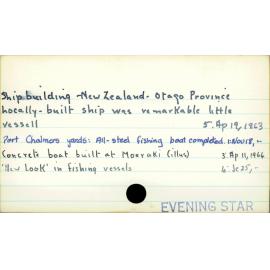 Shipbuilding - New Zealand - Otago Province
Locally-built ship was remarkable little
vessell 5. Ap 19, 1863
Port Chalmers yards: All-steel fishing boat completed. 1: Nov 18, -
Concrete boat built at Moeraki (illus) 3. Ap 11, 1966
'New Look' in fishing vessels 4: Je 25, -
EVENING STAR